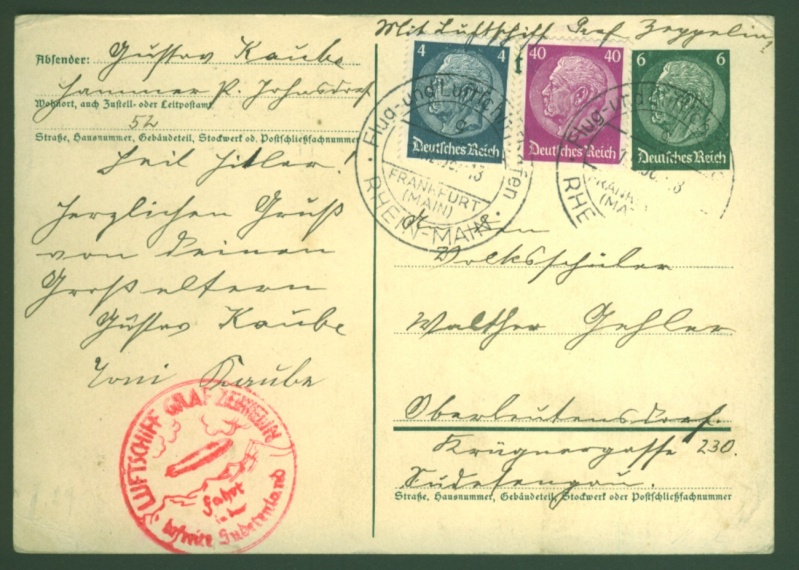 Mit Luftschiff Graf Zeppelin!
Absender: Gustav Kaube
Hammer P. Johnsdorf
Wohnort, auch Zustell- oder Leitpostamt
52
Straße, Hausnummer, Gebäudeteil, Stockwerk od. Postschließfachnummer
Heil Hitler!
Herzlichen Gruß
von Deinen
Großeltern
Gustav Kaube
Toni Kaube
LUFTSCHIFF GRAF ZEPPELIN
Fahrt
in das
befreite Sudetenland
4 4
Deutsches Reich
40 40
Deutsches Reich
6 6
Deutsches Reich
Flug- und Luftschiffhafen
FRANKFURT
(MAIN)
RHEIN-MAIN
Flug- und
FRANK
(MA
RHE
Volksschüler
Walther Gehler
Oberleutensdorf.
Krügnergasse 230.
Sudetengau.
Straße, Hausnummer, Gebäudeteil, Stockwerk oder Postschließfachnummer